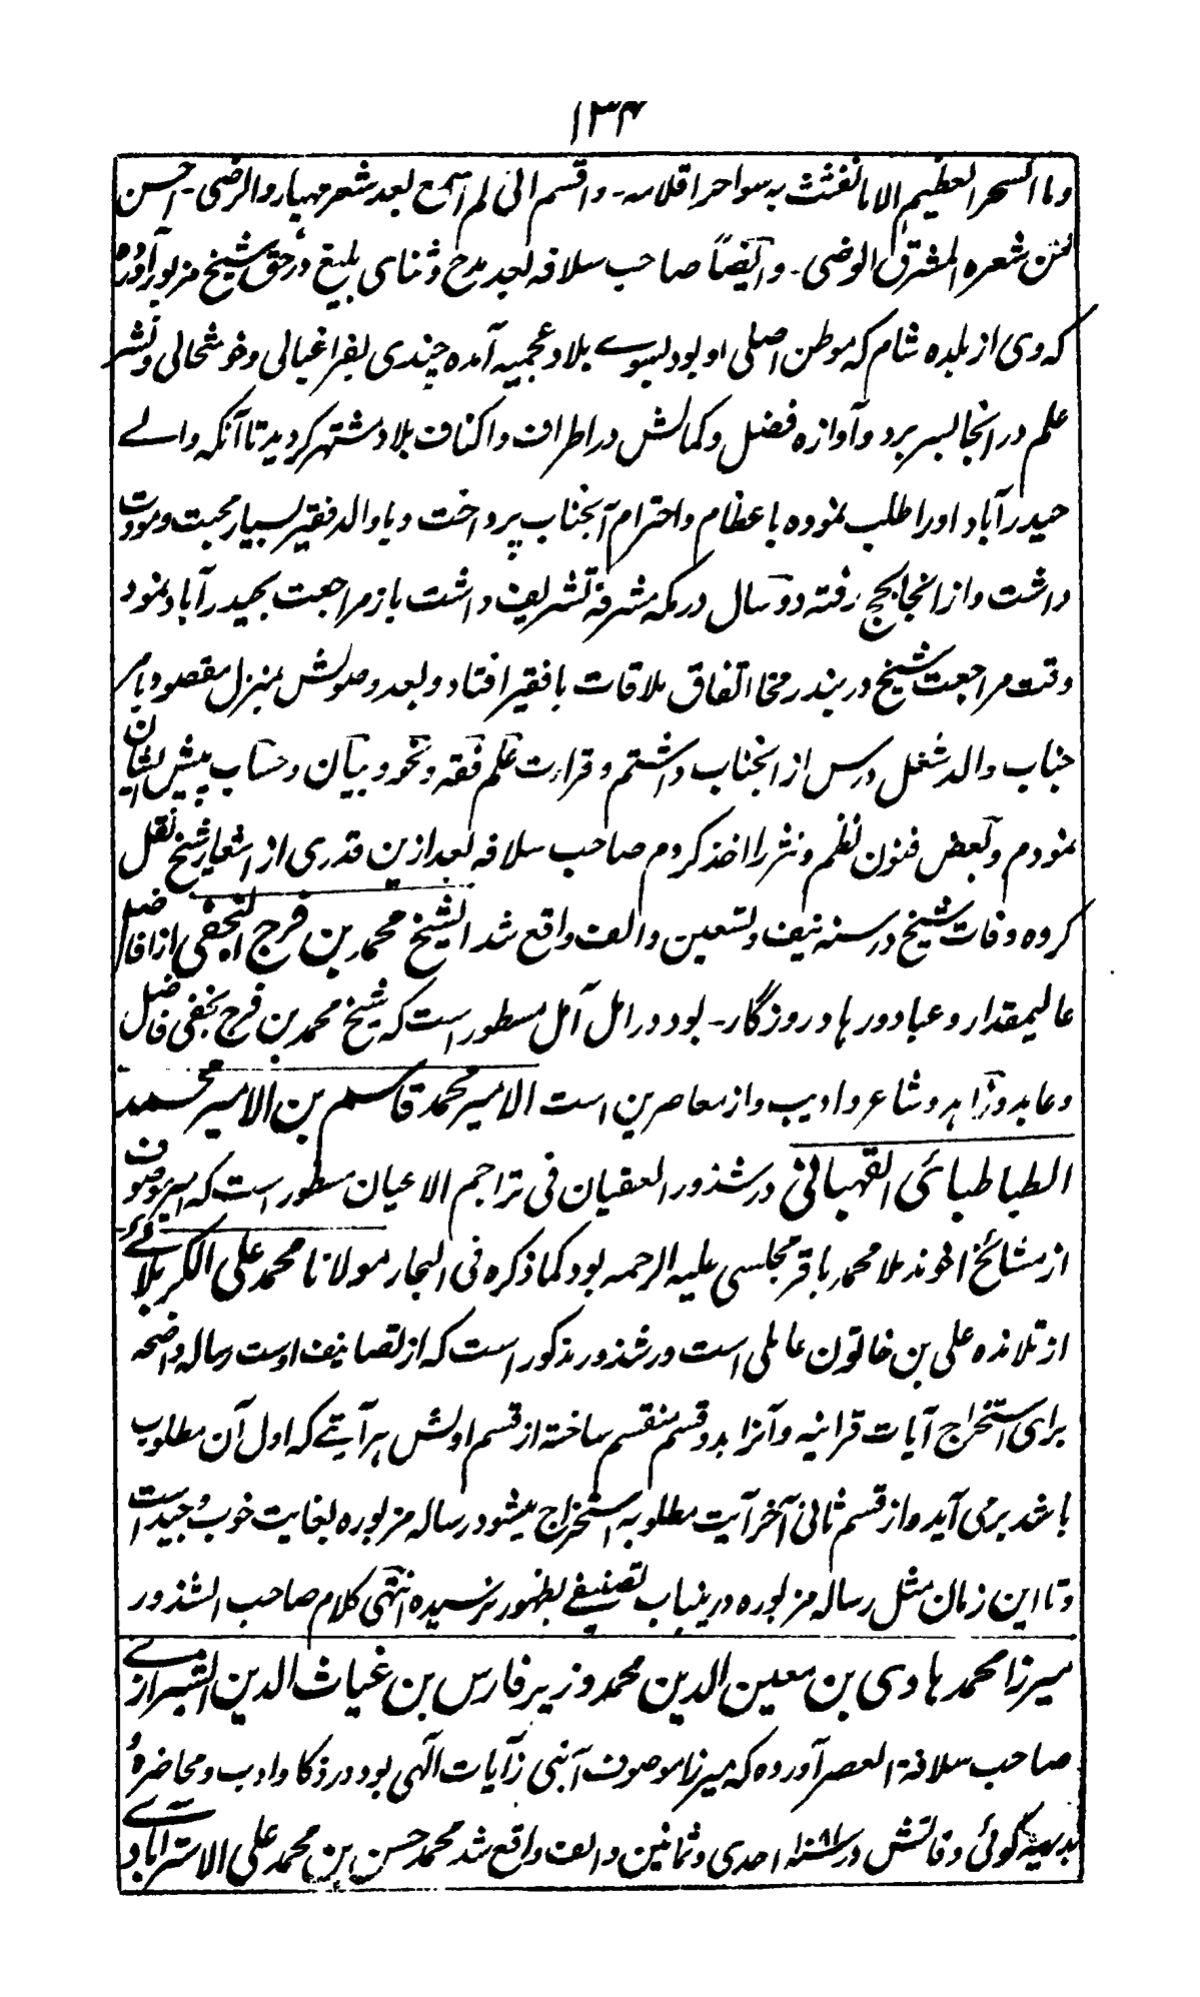 ۱۳۴
وما السحر العظیم الا ما نفثت به سواحر اقلامه - واقسم انی لم اسمع بعد شعر مهیار والرضی - احسن
من شعره المشرق الوضی - وایضاً صاحب سلافه بعد مدح وثنای بلیغ در حق شیخ مزبور آورده
که وی از بلده شام که موطن اصلی او بود بسوے بلاد عجمیه آمده چندی بفراغبالی وخوشحالی ونشر
علم در انجا بسر برد وآوازه فضل وکمالش در اطراف واکناف بلاد مشتهر کردید تا آنکه والے
حیدرآباد اورا طلب نموده باعظام واحترام آنجناب پرداخت وبا والد فقیر بسیار محبت ومودت
داشت واز انجا بحج رفته دو سال در مکه مشرفه تشریف داشت باز مراجعت بحیدرآباد نمود
وقت مراجعت شیخ در بندر مخا اتفاق ملاقات با فقیر افتاد وبعد وصولش بمنزل مقصود بامر
جناب والد شغل درس از انجناب داشتم وقرارت علم فقه ونحو وبیان وحساب پیش ایشان
نمودم وبعض فنون نظم ونثر را اخذ کردم صاحب سلافه بعد ازین قدری از اشعار شیخ نقل
کرده وفات شیخ در سنه نیف وتسعین والف واقع شد الشیخ محمد بن فرج النجفی از افاضل
عالیمقدار وعباد ورهاد روزگار - بود در امل آمل مسطور است که شیخ محمد بن فرج نجفی فاضل
وعابد وزاهد وشاعر وادیب واز معاصرین است الامیر محمد قاسم بن الامیر محمد
الطباطبائی القهپائی در شذور العقیان فی تراجم الاعیان مسطور است که امیر موصوف
از مشائخ اخوند ملا محمد باقر مجلسی علیه الرحمه بود کما ذکره فی البحار مولانا محمد علی الکربلائے
از تلامذه علی بن خاتون عاملی است در شذور مذکور است که از تصانیف اوست رساله واضحه
برای استخراج آیات قرانیه وآنرا بدو قسم منقسم ساخته از قسم اولش هر آیتے که اول آن مطلوب
باشد برمی آید واز قسم ثانی آخر آیت مطلوبه استخراج میشود رساله مزبوره بغایت خوب وجید است
وتا این زمان مثل رساله مزبوره درینباب تصنیفے بظهور نرسیده انتهی کلام صاحب الشذور
میرزا محمد هادی بن معین الدین محمد وزیر فارس بن غیاث الدین الشیرازے
صاحب سلافة العصر آورده که میرزا موصوف آیتی ز آیات الهی بود در ذکا وادب ومحاضره و
بدیهه گوئی وفاتش در سنه ۱۰۸۱ احدی وثمانین والف واقع شد محمد حسن بن محمد علی الاسترآبادے